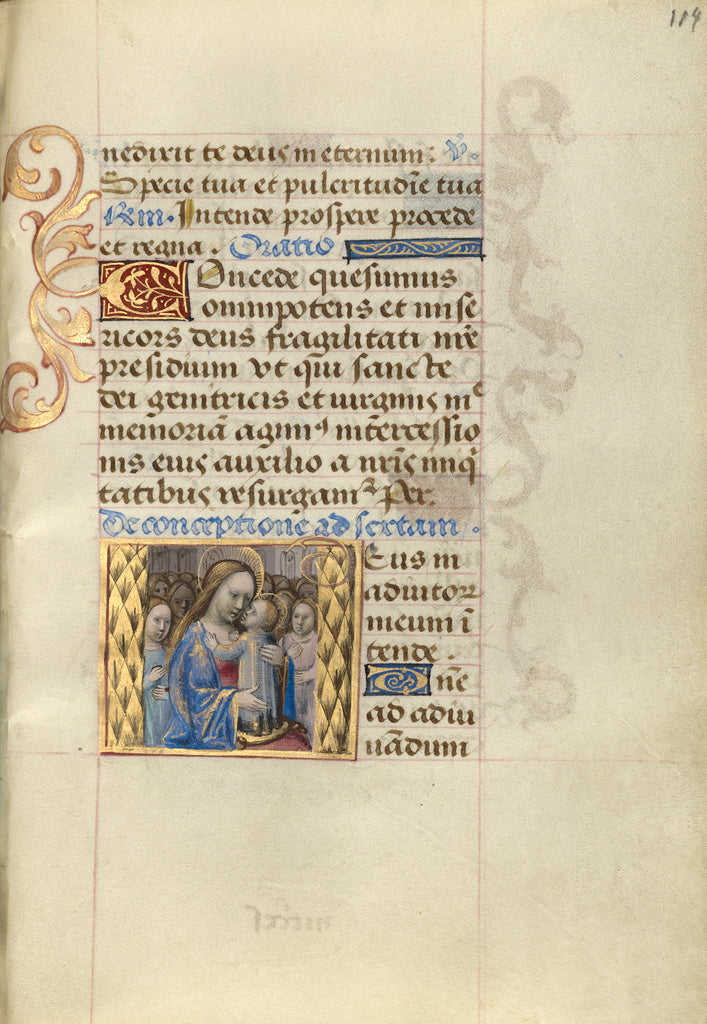 114
nedixit te deus in eternum: v.
Specie tua et pulcritudīe tua
Rm. Intende prospere procede
et regna. Oratio
Concede quesumus
omnipotens et mise
ricors deus fragilitati nr̄e
presidium vt qui sancte
dei genitricis et uirginis mᵉ
memoriā agimꝰ intercessio
nis eius auxilio a nr̄is iniq̄
tatibus resurgamꝰ Per.
De conceptione ad sextam.
Deus in
adiutori
meum ī
tende.
Dn̄e
ad adiu
uādum